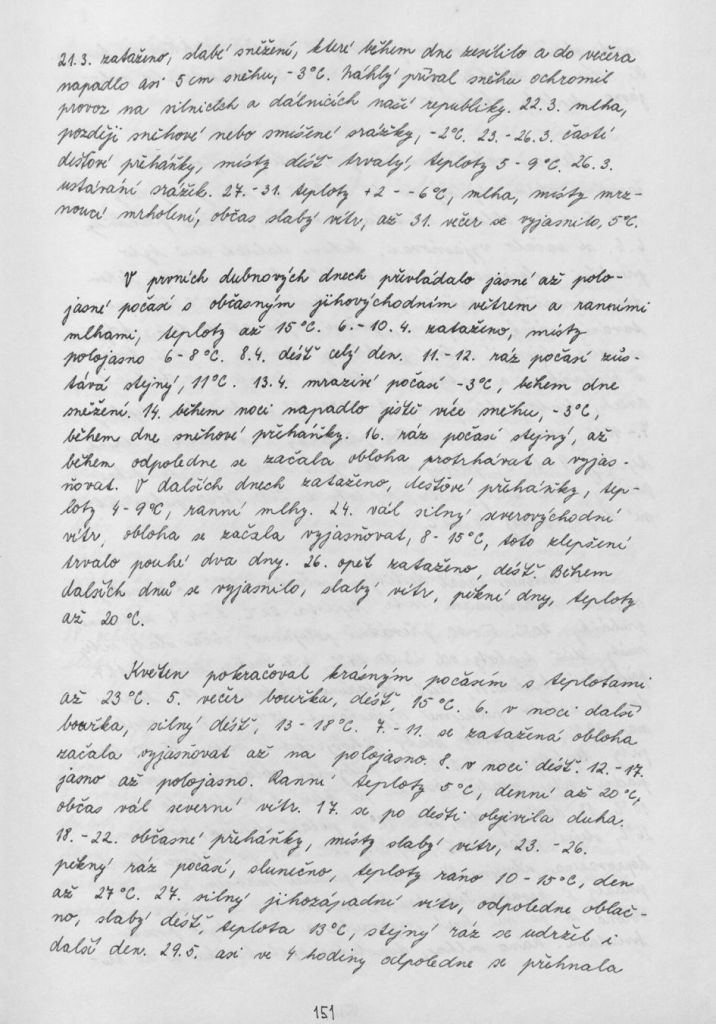 21.3. zataženo, slabé sněžení, které během dne zesílilo a do večera
napadlo asi 5 cm sněhu, -3°C. Náhlý příval sněhu ochromil
provoz na silnicích a dálnicích naší republiky. 22.3. mlha,
později sněhové nebo smíšené srážky, -2°C. 23.-26.3. časté
dešťové přeháňky, místy déšť trvalý, teploty 5-9°C. 26.3.
ustávání srážek. 27.-31. teploty +2 - -6°C, mlha, místy mrz-
noucí mrholení, občas slabý vítr, až 31. večer se vyjasnilo, 5°C.
V prvních dubnových dnech převládalo jasné až polo-
jasné počasí s občasným jihovýchodním větrem a ranními
mlhami, teploty až 15°C. 6.-10.4. zataženo, místy
polojasno 6-8°C. 8.4. déšť celý den. 11.-12. ráz počasí zůs-
tává stejný, 11°C. 13.4. mrazivé počasí -3°C, během dne
sněžení. 14. během noci napadlo ještě více sněhu, -3°C,
během dne sněhové přeháňky. 16. ráz počasí stejný, až
během odpoledne se začala obloha protrhávat a vyjas-
ňovat. V dalších dnech zataženo, dešťové přeháňky, tep-
loty 4-9°C, ranní mlhy. 24. vál silný severovýchodní
vítr, obloha se začala vyjasňovat, 8-15°C, toto zlepšení
trvalo pouhé dva dny. 26. opět zataženo, déšť. Během
dalších dnů se vyjasnilo, slabý vítr, pěkné dny, teploty
až 20°C.
Květen pokračoval krásným počasím s teplotami
až 23°C. 5. večer bouřka, déšť, 15°C. 6. v noci další
bouřka, silný déšť, 13-18°C. 7.-11. se zatažená obloha
začala vyjasňovat až na polojasno. 8. v noci déšť. 12.-17.
jasno až polojasno. Ranní teploty 5°C, denní až 20°C,
občas vál severní vítr. 17. se po dešti objevila duha.
18.-22. občasné přeháňky, místy slabý vítr, 23.-26.
pěkný ráz počasí, slunečno, teploty ráno 10-15°C, den
až 27°C. 27. silný jihozápadní vítr, odpoledne oblač-
no, slabý déšť, teplota 13°C, stejný ráz se udržel i
další den. 29.5. asi ve 4 hodiny odpoledne se přehnala
151